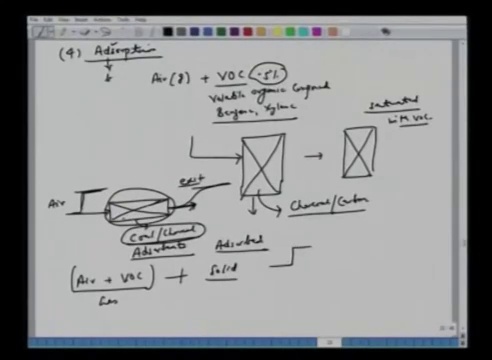 (4) Adsorption
Air (g) + VOC (~5%)
Volatile organic Compound
Benzene, Xylene
saturated
with VOC
exit
Air
Charcoal/Carbon
Coal/Charcoal
Adsorbents
Adsorbed
(Air + VOC) + Solid
Gas